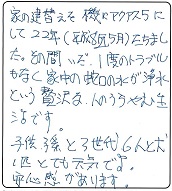 家の建替えを機にアクアス5に
して22年(平成8年5月)たちました。
その間いぞ、1度のトラブル
もなく家中の蛇口の水が浄水
という贅沢な、んのうらやましい生
活です。
子供、孫と3世代6人と犬
1匹とても元気ですよ。
安心感があります。